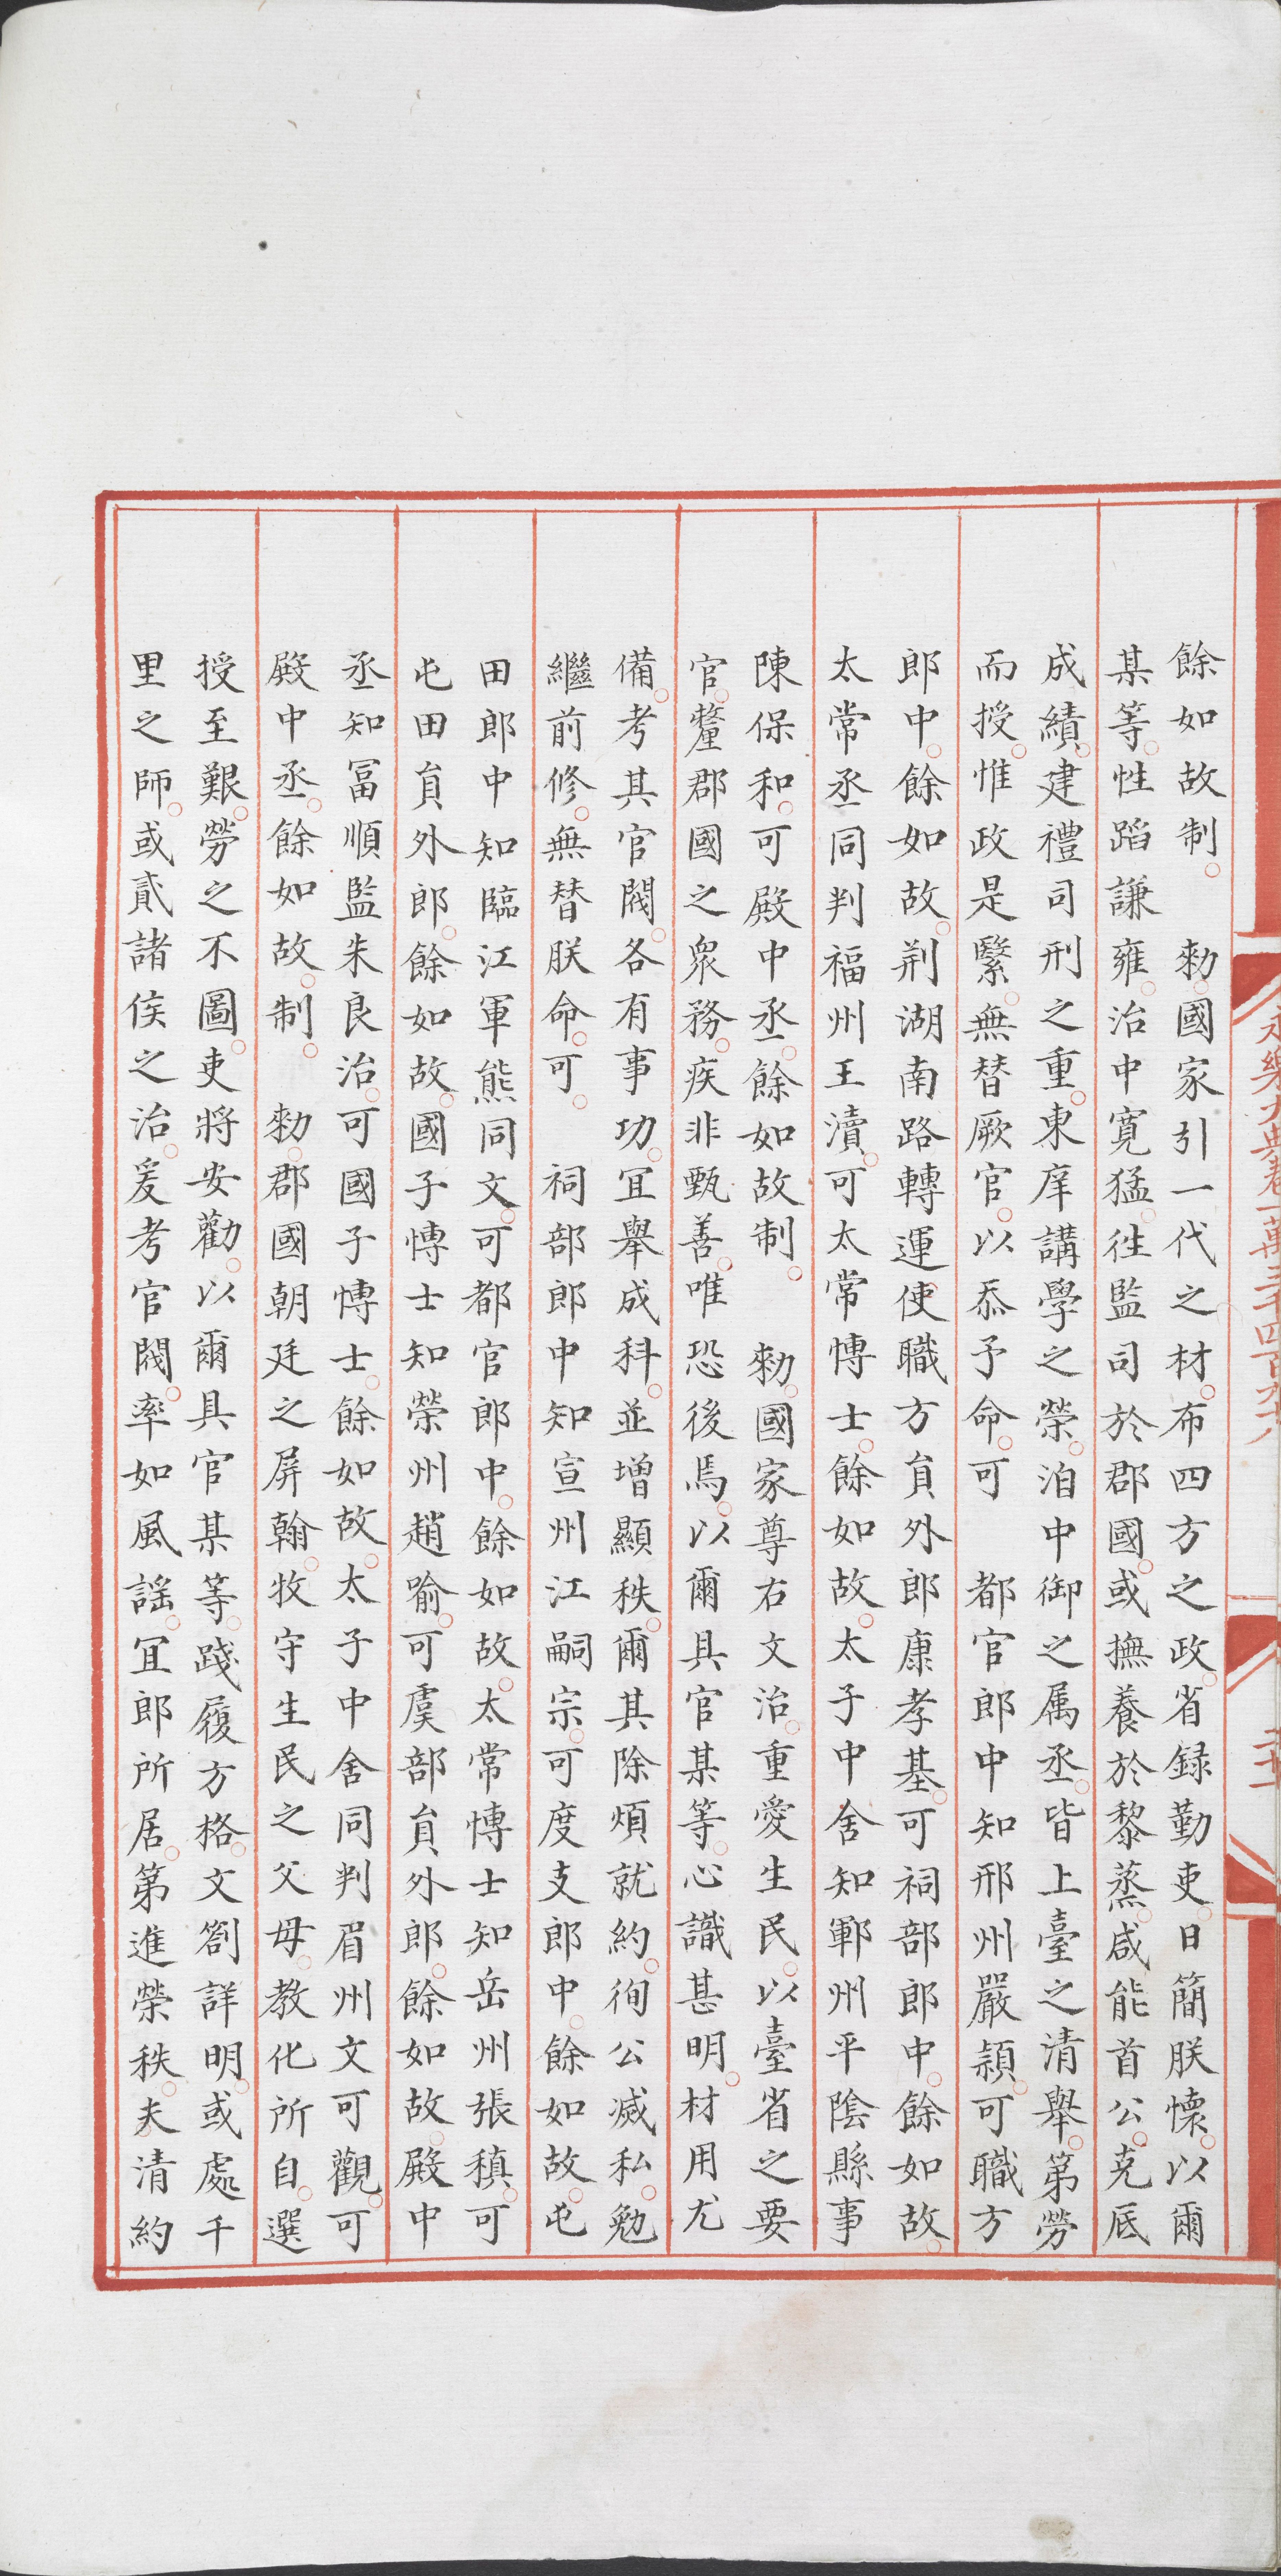 永樂大典卷一萬三千四百九十八
二十一
餘如故制。　勑。國家引一代之材。布四方之政。省録勤吏。日簡朕懷。以爾
某等。性蹈謙雍。治中寛猛。徃監司於郡國。或撫養於黎蒸。咸能首公。克底
成績。建禮司刑之重。東庠講學之榮。洎中御之属丞。皆上臺之清舉。第勞
而授。惟政是繄。無替厥官。以忝予命。可　都官郎中知邢州嚴頴。可職方
郎中。餘如故。荆湖南路轉運使職方貟外郎康孝基。可祠部郎中。餘如故。
太常丞同判福州王瀆。可太常愽士。餘如故。太子中舍知鄆州平陰縣事
陳保和。可殿中丞。餘如故制。　勑。國家尊右文治。重愛生民。以臺省之要
官。釐郡國之衆務。疾非甄善。唯恐後焉。以爾具官某等。心識甚明。材用尤
備。考其官閥。各有事功。冝舉成科。並增顯秩。爾其除煩就約。徇公滅私。勉
繼前修。無替朕命。可。　祠部郎中知宣州江嗣宗。可度支郎中。餘如故。屯
田郎中知臨江軍熊同文。可都官郎中。餘如故。太常愽士知岳州張稹。可
屯田貟外郎。餘如故。國子愽士知榮州趙喻。可虞部貟外郎。餘如故。殿中
丞知冨順監朱良治。可國子愽士。餘如故。太子中舍同判眉州文可觀。可
殿中丞。餘如故。制。　勑。郡國朝廷之屏翰。牧守生民之父毋。教化所自。選
授至艱。勞之不圖。吏將安勸。以爾具官某等。踐履方格。文劄詳明。或處千
里之師。或貳諸侯之治。爰考官閥。率如風謡。冝郎所居。第進榮秩。夫清約